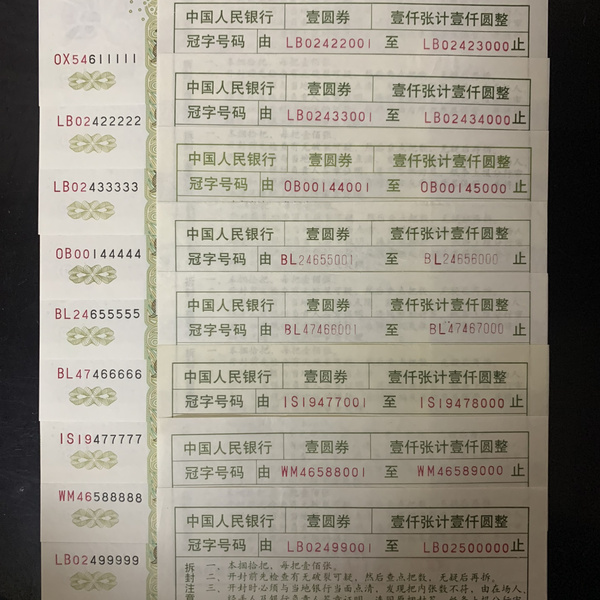 OX54611111
LB02422222
LB02433333
OB00144444
BL24655555
BL47466666
IS19477777
WM46588888
LB02499999
中国人民银行 壹圆券 壹仟张计壹仟圆整
冠字号码 由 LB02422001 至 LB02423000 止
中国人民银行 壹圆券 壹仟张计壹仟圆整
冠字号码 由 LB02433001 至 LB02434000 止
中国人民银行 壹圆券 壹仟张计壹仟圆整
冠字号码 由 OB00144001 至 OB00145000 止
中国人民银行 壹圆券 壹仟张计壹仟圆整
冠字号码 由 BL24655001 至 BL24656000 止
中国人民银行 壹圆券 壹仟张计壹仟圆整
冠字号码 由 BL47466001 至 BL47467000 止
中国人民银行 壹圆券 壹仟张计壹仟圆整
冠字号码 由 IS19477001 至 IS19478000 止
中国人民银行 壹圆券 壹仟张计壹仟圆整
冠字号码 由 WM46588001 至 WM46589000 止
中国人民银行 壹圆券 壹仟张计壹仟圆整
冠字号码 由 LB02499001 至 LB02500000 止
拆 一、本捆拾把，每把壹佰张。
封 二、开封前先检查有无破裂可疑，然后查点把数，无疑后再拆。
注 三、开封时必须与当地银行当面点清，发现把内张数不符，由在场人、